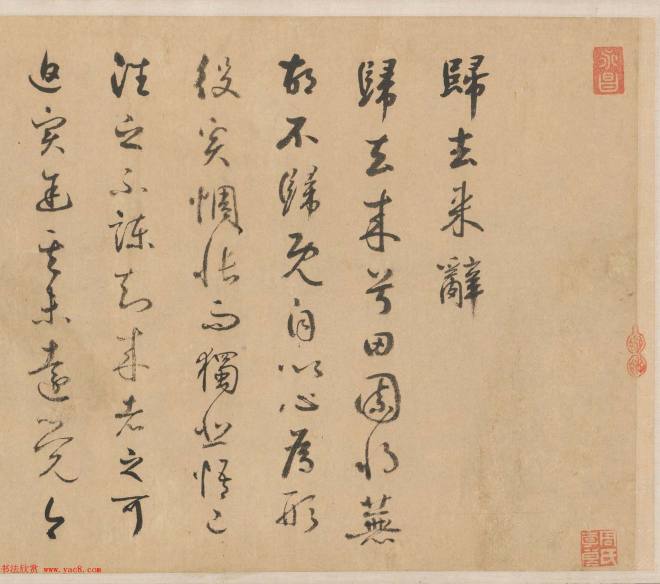 永昌
歸去来辭
歸去來兮田園将蕪
胡不歸既自以心為形
役奚惆悵而獨悲悟已
往之不諫知來者之可
追實迷其未遠覺今
周氏
书法欣赏 www.yac8.com